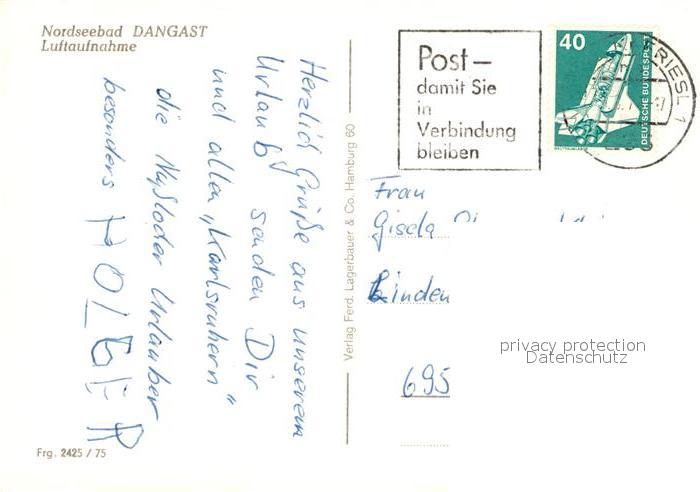 Nordseebad DANGAST
Luftaufnahme
Herzlich Grüße aus unserem
Urlaub senden Dir
und allen „Karlsruhern“
die Nußlocher Urlauber
besonders HOLGER
Frg. 2425 / 75
Verlag Ferd. Lagerbauer & Co. Hamburg 60
Post –
damit Sie
in
Verbindung
bleiben
40
DEUTSCHE BUNDESPOST
FRIESL 1
Frau
Gisela
Linden
695
privacy protection
Datenschutz